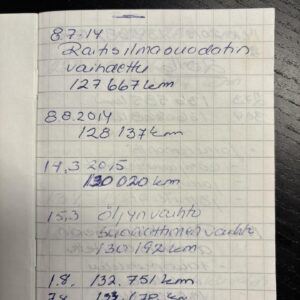 8.7.14
Raitisilmasuodatin
vaihdettu
127 667 km
8.8.2014
128 137 km
14.3 2015
130 020 km
15.3 Öljyn vaihto
130 192 km
1.8. 132.751 km